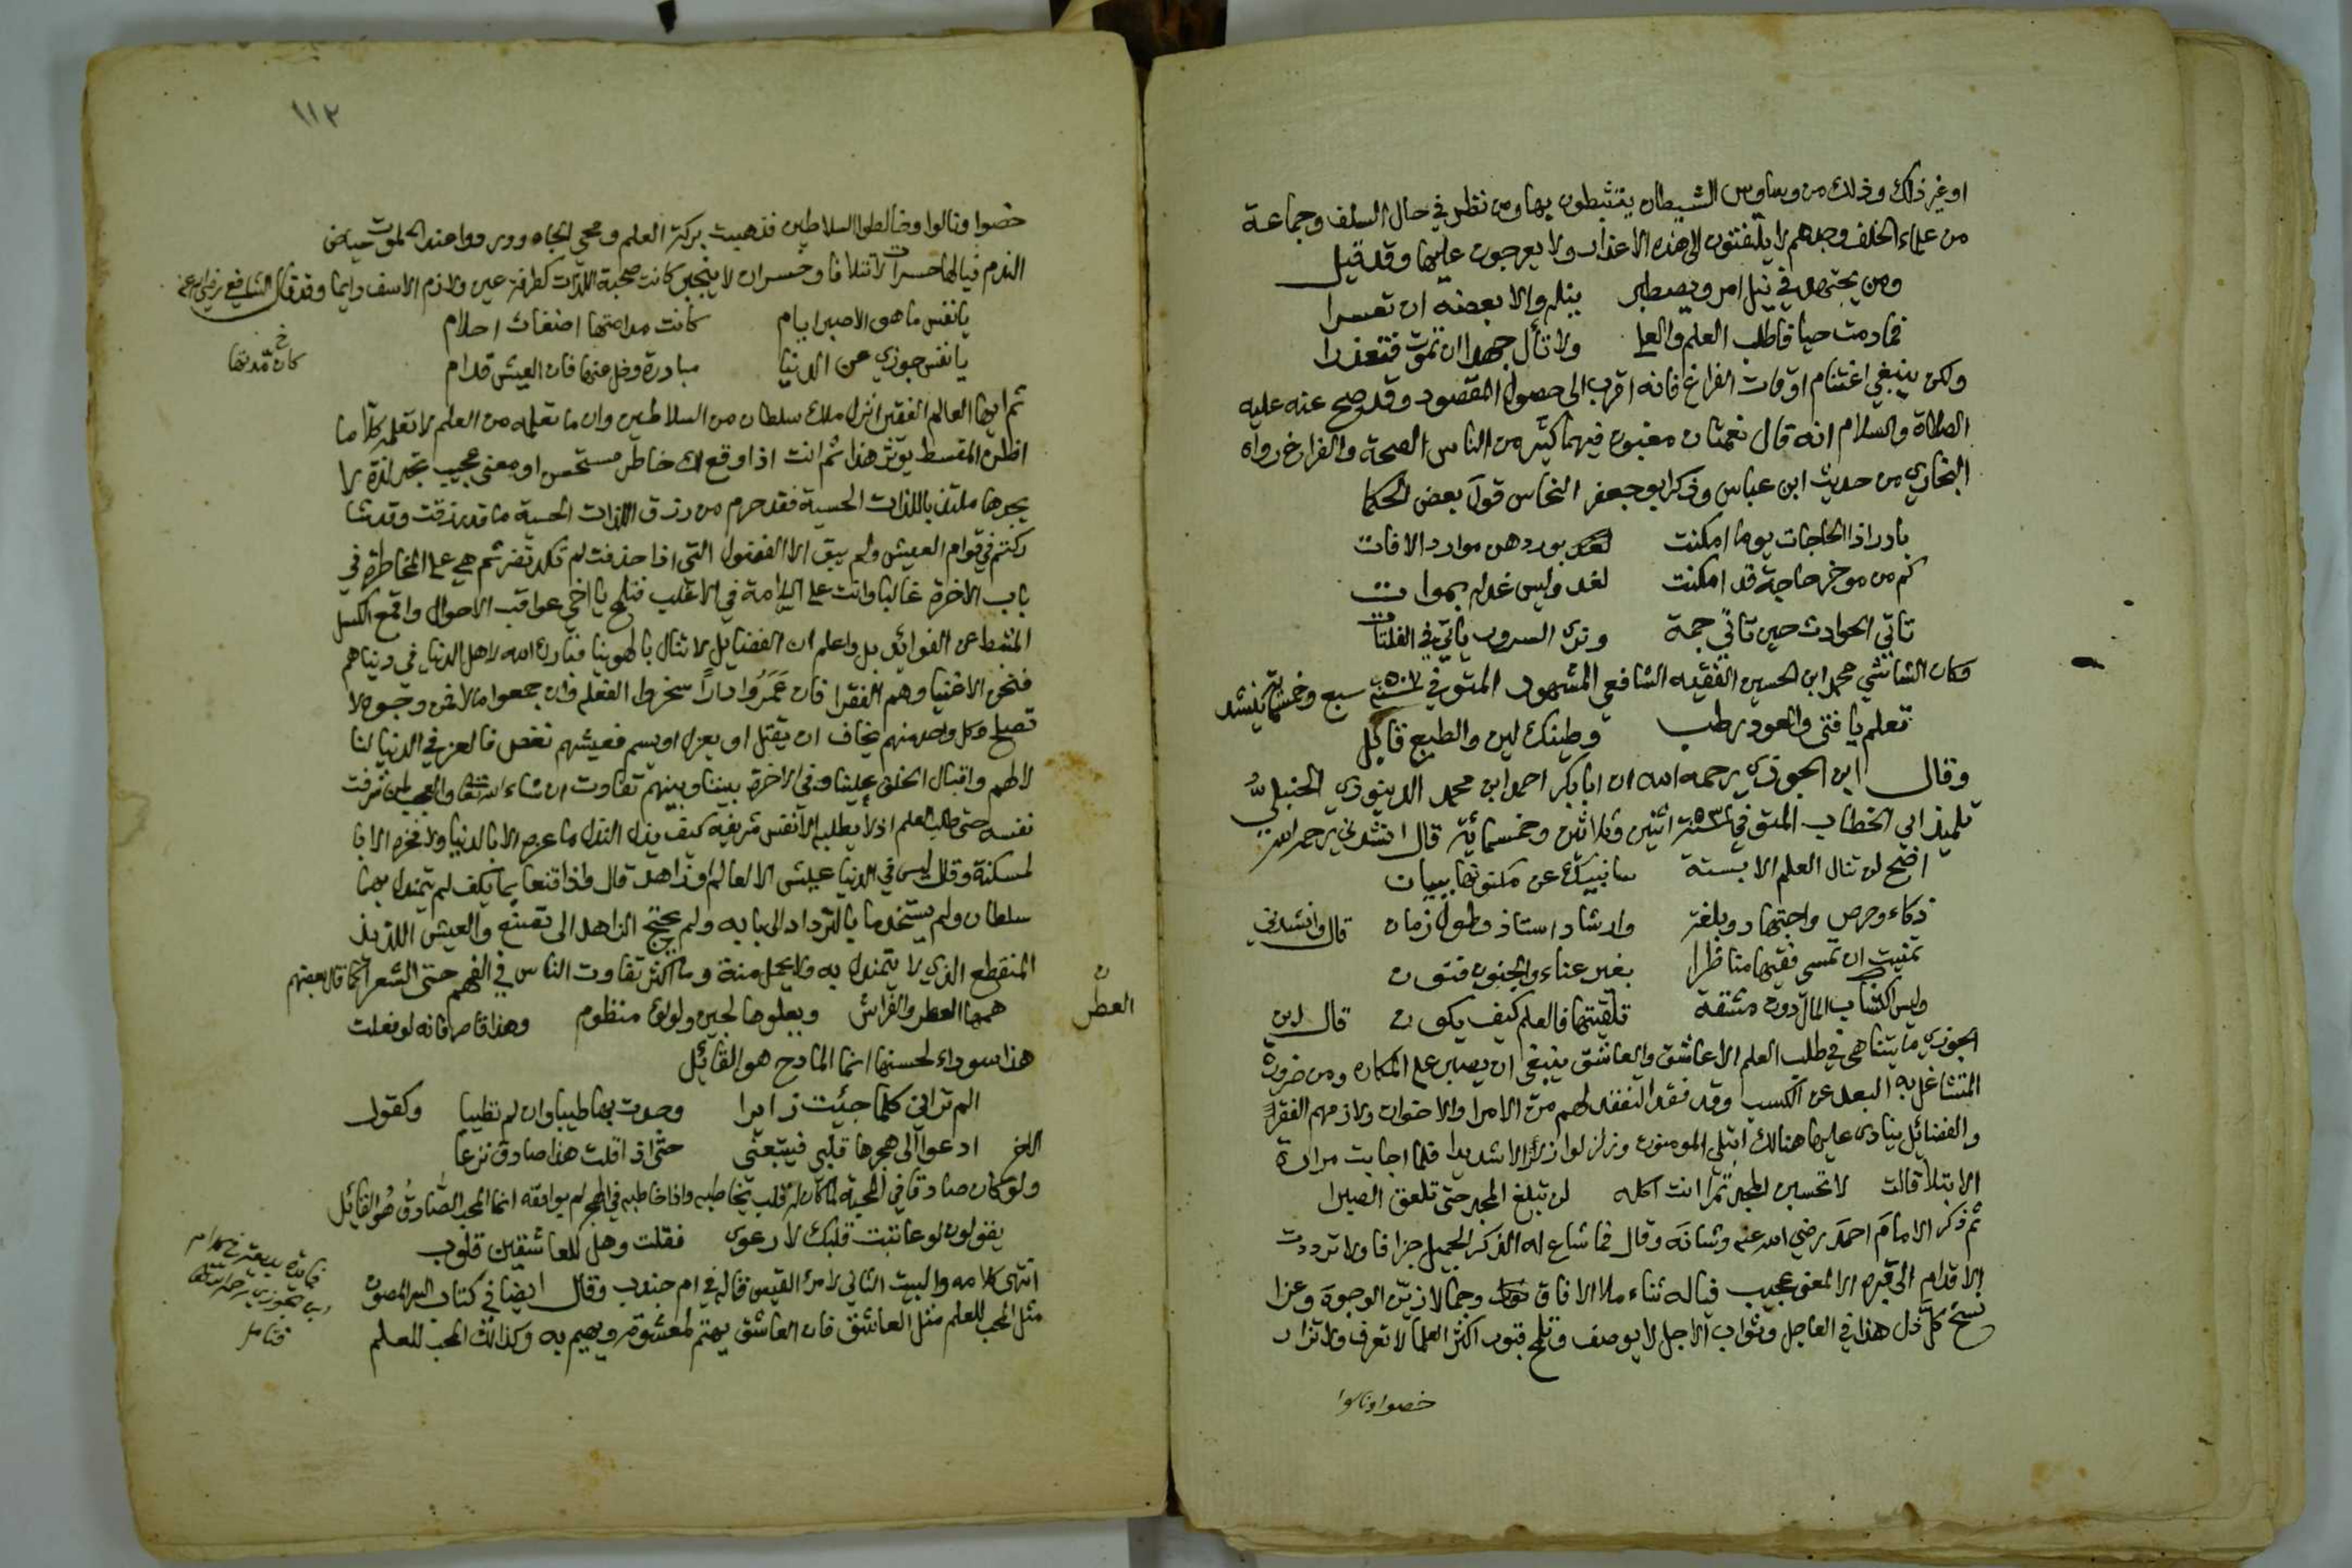 او غير ذلك وذلك من وساوس الشيطان يتثبطون بها ومن نظر في حال السلف وجماعة
من علماء الخلف وجدهم لا يلتفتون الى هذه الاعذار ولا يعرجون عليها وقد قيل
ومن يجتهد في نيل امر ويصطبر ينله والا بعضه ان تعسرا
فما دمت حيا فاطلب العلم والعلى ولا تأل جهدا ان تموت فتعذرا
ولكن ينبغي اغتنام اوقات الفراغ فانه اقرب الى حصول المقصود وقد صح عنه عليه
الصلاة والسلام انه قال نعمتان مغبون فيهما كثير من الناس الصحة والفراغ رواه
البخاري من حديث ابن عباس وذكر ابو جعفر النحاس قول بعض الحكما
بادر اذا الحاجات يوما امكنت بورودهن موارد الافات
كم من موخر حاجة قد امكنت لغد وليس غد له بموات
تاتي الحوادث حين تاتي جمة وترى السرور ياتي في الفلتات
وكان الشاشي محمد ابن الحسين الفقيه الشافعي المشهور المتوفي في سنة ٥٠٧ سبع وخمسماية ينشد
تعلم يا فتى والعود رطب وطينك لين والطبع قابل
وقال ابن الجوزي رحمه الله ان ابا بكر احمد ابن محمد الدينوري الحنبلي
تلميذ ابي الخطاب المتوفي في سنة ٥٣٢ اثنين وثلاثين وخمسمائة قال انشدني رحمه الله
اخي لن تنال العلم الا بستة سانبيك عن مكنونها ببيان
ذكاء وحرص واجتهاد وبلغة وارشاد استاذ وطول زمان قال وانشدني
تمنيت ان تمسي فقيها مناظرا بغير عناء والجنون فنون
وليس اكتساب المال دون مشقة تلقيتها فالعلم كيف يكون قال ابن
الجوزي ما يتناهى في طلب العلم الا عاشق والعاشق ينبغي ان يصبر على المكاره ومن ضرورة
المتشاغل به البعد عن الكسب وقد فقد التفقد لهم من الامرا والاخوان ولازمهم الفقر
والفضائل ينادى عليها هنالك ابتلي المومنون وزلزلوا زلزالا شديدا فلما اجابت مرارة
الابتلا قالت لا تحسبن المجد تمرا انت اكله لن تبلغ المجد حتى تلعق الصبرا
ثم ذكر الامام احمد رضي الله عنه وشانه وقال فما شاع له الذكر الجميل جزافا ولا ترددت
الاقدام الى قبره الا لمعنى عجيب فياله ثناء ملا الافاق وجمالا زين الوجود وعزا
نسخ كل ذل هذا في العاجل وثواب الاجل لا يوصف وتلمح قبور اكثر العلما لا تعرف ولا تزار
خصوا ونالوا
١١٢
خصوا ونالوا وخالطوا السلاطين فذهبت بركة العلم ومحي الجاه ووردوا عند الموت حياض
الندم فيالها حسرات لا تتلافا وخسران لا ينجبر كانت صحبة اللذات كطرفة عين ولازم الاسف دايما وقد قال الشافعي رضي الله عنه
يا نفس ما هو الا صبر ايام كانت مدتها اضغاث احلام
يا نفس جوزي عن الدنيا مبادرة وخل عنها فان العيش قدام
خ
كان مدتها
ثم ايها العالم الفقير ايسرك ملك سلطان من السلاطين وان ما تعلمه من العلم لا تعلمه كلا ما
اظن المقسط يوثر هذا ثم انت اذا وقع لك خاطر مستحسن او معنى عجيب تجد لذة لا
يجدها ملتذ باللذات الحسية فقد حرم من رزق اللذات الحسية ما قد رزقت وقد شا
ركتهم في قوام العيش ولم يبق الا الفضول التي اذا حذفت لم تكد تضر ثم هي على المخاطرة في
باب الاخرة غالبا وانت على السلامة في الاغلب فتلمح يا اخي عواقب الاحوال واقمع الكسل
المثبط عن الفوائد بل واعلم ان الفضايل لا تنال بالهوينا فبارك الله لاهل الدنيا في دنياهم
فنحن الاغنيا وهم الفقرا فان عمروا دارا سخروا الفعلة وان جمعوا مالا فمن وجوه لا
تصلح وكل واحد منهم يخاف ان يقتل او يعزل او يسم فعيشهم نغص فالعز في الدنيا لنا
لا لهم واقبال الخلق علينا وفي الاخرة بيننا وبينهم تفاوت ان شاء الله تعالى والعجب لمن شرفت
نفسه حتى طلب العلم اذ لا يطلبه الا نفس شريفة كيف يذل لنذل ما عزه الا بالدنيا ولا فخره الا با
لمسكنة وقال ليس في الدنيا عيش الا لعالم او زاهد قال واذا قنعا بما يكف لم يتمندل بهما
سلطان ولم يستخدما بالترداد الى بابه ولم يحتج الزاهد الى تصنع والعيش اللذيذ
المنقطع الذي لا يتمندل به ولا يحمل منة وما اكثر تفاوت الناس في الفهم حتى الشعرا كما قال بعضهم
همها العطر والفراش ويعلوها لجين ولولو منظوم وهذا قاصر فانه لو فعلت
ن
العطر
هذا سوداء لحسنها انما المادح هو القائل
الم ترياني كلما جئت زايرا وجدت بها طيبا وان لم تطيبا وكقول
الاخر ادعوا الى هجرها قلبي فيتبعني حتى اذا قلت هذا صادق نزعا
ولو كان صادقا في المحبة لما كان له قلب يخاطبه واذا خاطبه في الهجر لم يوافقه انما المحب الصادق هو القائل
يقولون لو عاتبت قلبك لارعوى فقلت وهل للعاشقين قلوب
انتهى كلامه والبيت الثاني لامرء القيس قاله في ام جندب وقال ايضا في كتاب السر المصون
مثل المحب للعلم مثل العاشق فان العاشق يهتم لمعشوقه ويهيم به وكذلك المحب للعلم
فائدة بديعة من كلام
ابن الجوزي رحمه الله تعالى
فتامل